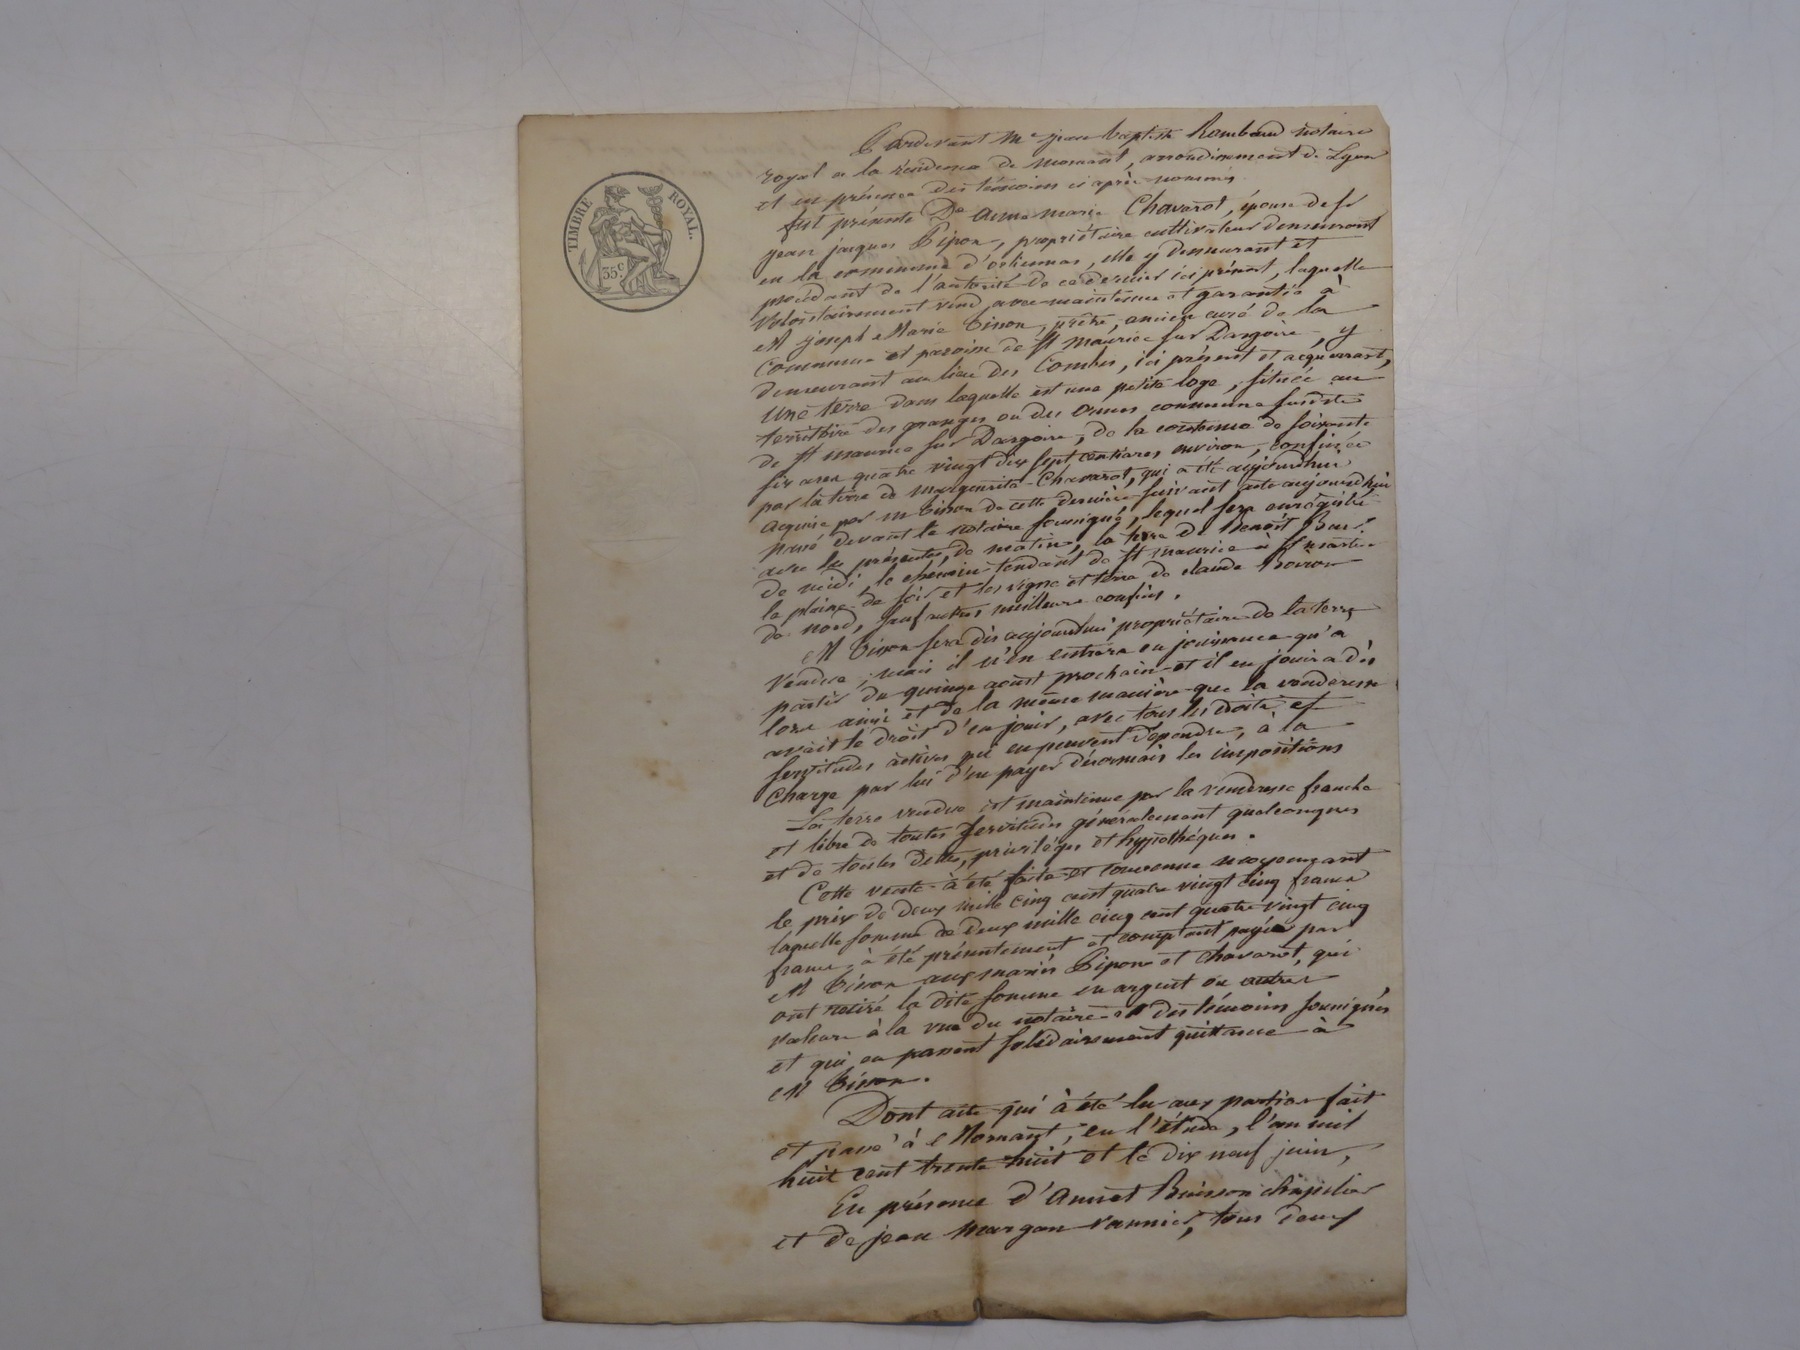 TIMBRE ROYAL.
35 c.
Pardevant Me jean baptiste Rambaud notaire
royal a la résidence de mornant, arrondissement de Lyon
et en présence des témoins ci après nommés.
fut présente De anne marie Chavarot, épouse de sr
jean jacques Pipon, propriétaire cultivateur demeurant
en la commune d', elle y demeurant et
procédant de l'autorité de ce dernier ici présent, laquelle
volontairement vend avec maintenue et garantie à
M joseph Marie Tisson, prêtre, ancien curé de la
commune et paroisse de St maurice sur Dargoire, y
demeurant au lieu des Combes, ici présent et acquerrant,
une terre dans laquelle est une petite loge, située au
territoire des granges ou des Ormes commune susdite
de St maurice sur Dargoire, de la contenue de soixante
six ares quatre vingt dix sept centiares environ, confinée
par la terre de marguerite Chavarot, qui a été aujourd'hui
acquise par m Tisson de cette dernière suivant acte aujourd'hui
passé devant le notaire soussigné, lequel sera enrégistré
avec les présentes, de matin, la terre de Benoit
de midi, le chemin tendant de St maurice à St martin
la plaine de soir et les vigne et terre de claude Poiron
de nord, sauf autres meilleurs confins.
M Tisson sera dès aujourd'hui propriétaire de la terre
vendue, mais il n'en entrera en jouissance qu'a
partir du quinze aoust prochain et il en jouira dès
lors ainsi et de la même manière que la venderesse
avait le droit d'en jouir, avec tous les droits et
servitudes actives qui en peuvent dépendre, à la
charge par lui d'en payer désormais les impositions
La terre vendue est maintenue par la venderesse franche
et libre de toutes servitudes généralement quelconques
et de toutes dettes, privilèges et hypothèques.
Cette vente à été faite et convenue moyennant
le prix de deux mille cinq cent quatre vingt cinq francs
laquelle somme de deux mille cinq cent quatre vingt cinq
francs, à été présentement et comptant payée par
M Tisson aux mariés Pipon et Chavarot, qui
ont retiré la dite somme en argent ou autres
valeurs à la vue du notaire et des témoins soussignés
et qui en passent solidairement quittance à
M Tisson.
Dont acte qui à été lu aux parties fait
et passé à Mornant, en l'étude, l'an mil
huit cent trente huit et le dix neuf juin,
En présence d' Buisson chapelier
et de jean margan vannier, tous deux